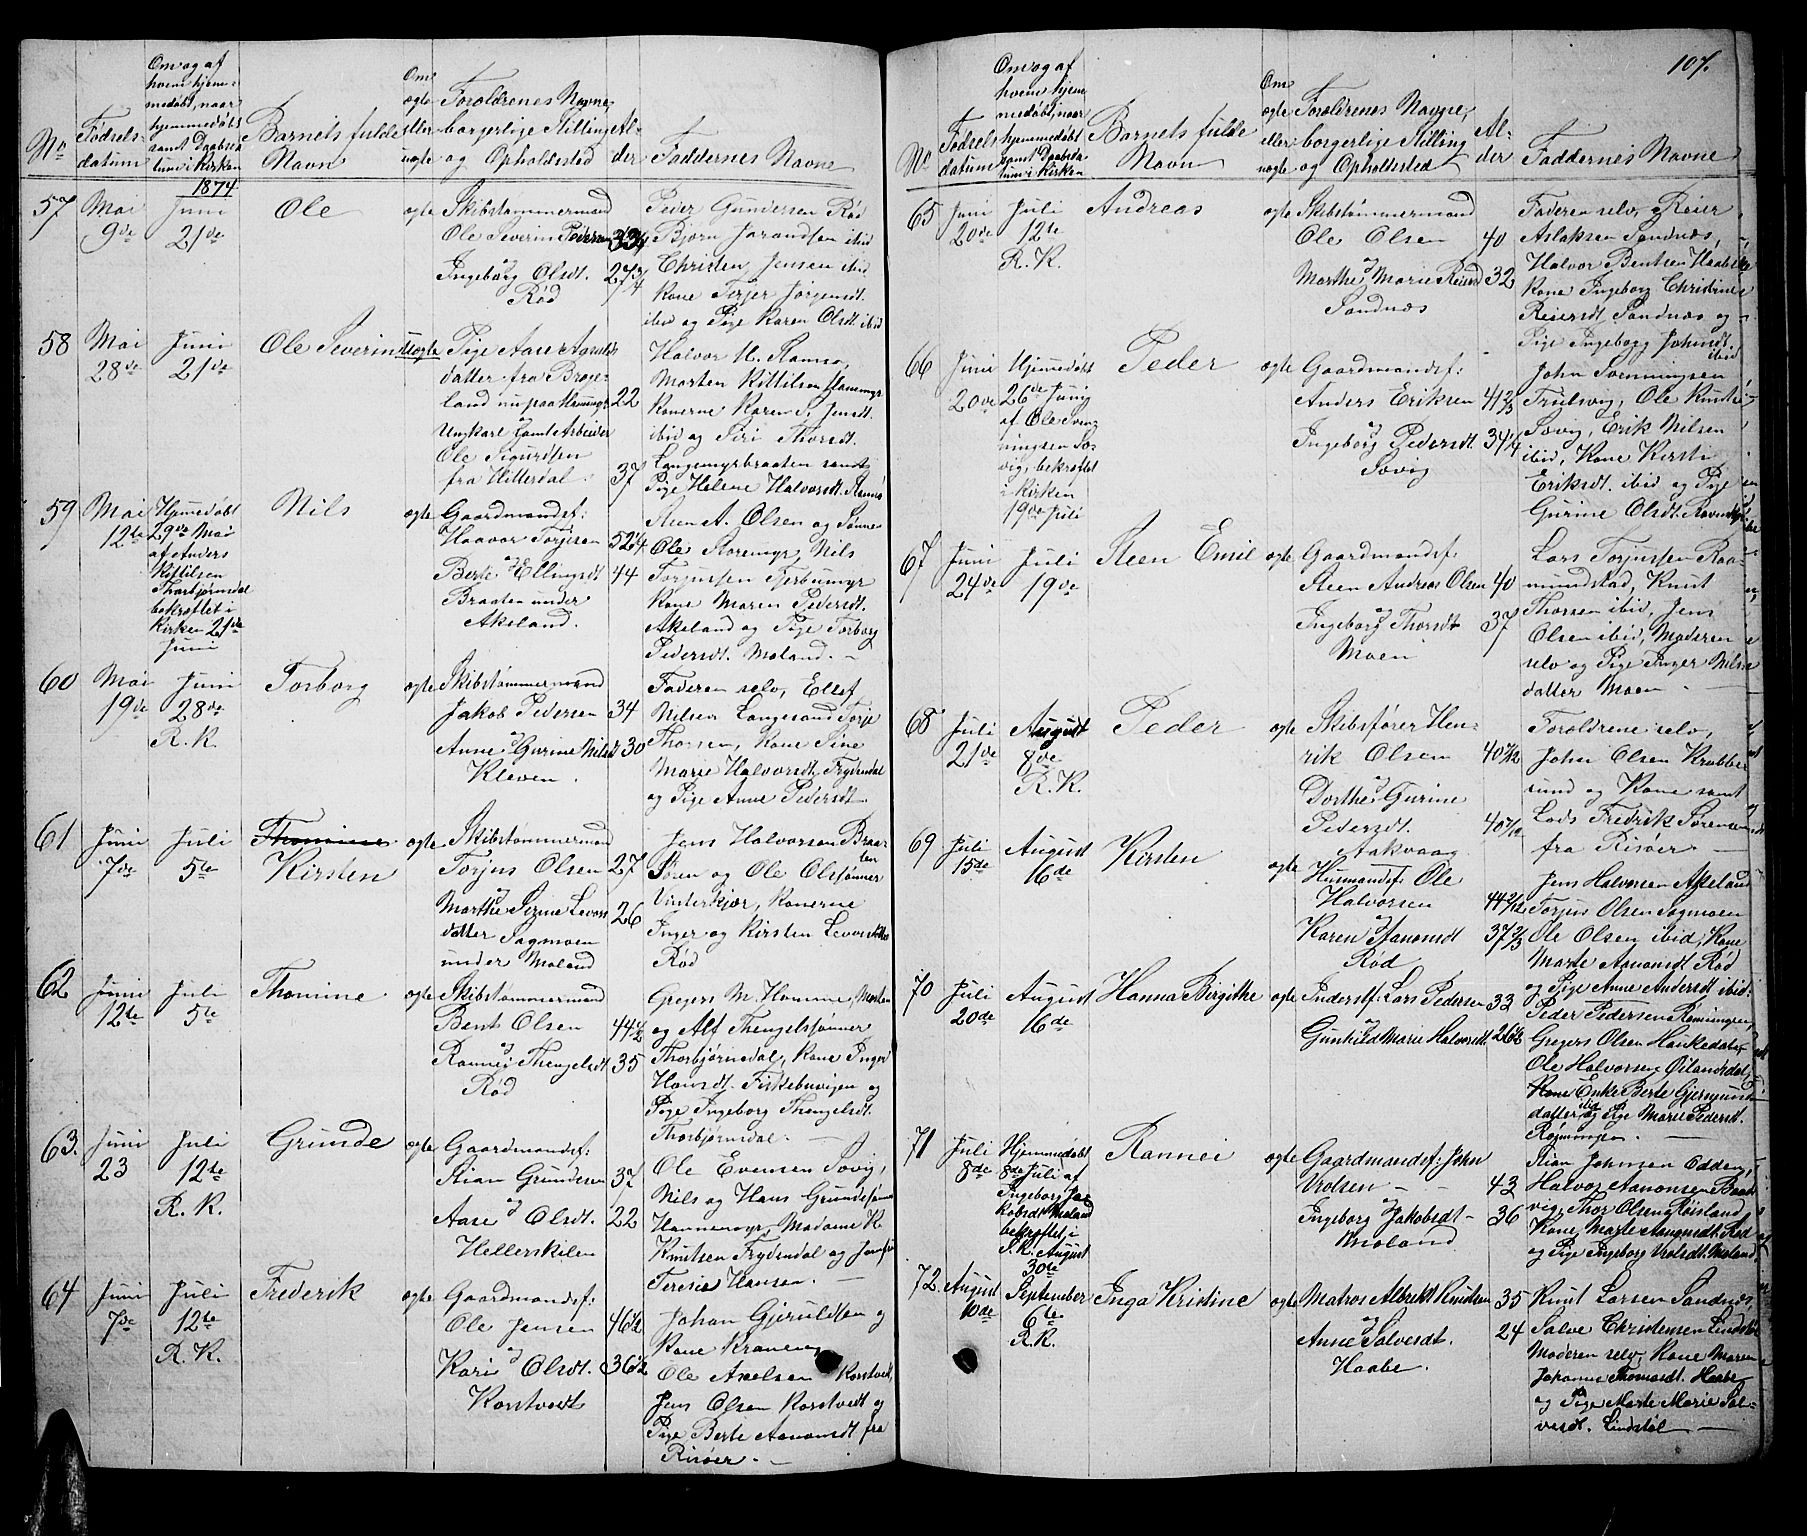 107.
No
Fødsels-
datum
Om og af
hvem hjem-
medøbt, naar
hjemmedøbt
samt Daabsda-
tum i Kirken
Barnets fulde
Navn
Om
ægte
eller
uægte
Foreldrenes Navne,
borgerlige Stilling
og Opholdssted
Al-
der
Faddernes Navne
1874
57
Mai
9de
Juni
21de
Ole
ægte
Skibstømmermand
Ole Severin Pedersen
og
Ingeborg Olsdt. 27 3/4
Rød
Peder Gundersen Rød
Bjørn Jorandsen ibid
Christen Jensen ibid
Kone Terjer Jørgensdt.
ibid og Pige Karen Olsdt. ibid
58
Mai
28de
Juni
21de
Ole Severin
uægte
Pige Aase Aanuls
datter fra Brøge-
land nu paa 22
Ungkarl Gamle Arbeider
Ole Sigurdsen
fra Hitterdal 37
Halvor H. Stamsø,
Morten Kittilsen
Konerne Karen S. Jensdt.
ibid og Siri Thorsdt.
Langemyrbraaten samt
Pige Helene Halvorsdt. Stamsø
59
Mai
12te
Hjemmedøbt
29de Mai
af Anders
Kittilsen
Thorbjørnsdal
bekræftet i
Kirken 21de
Juni
Nils
ægte
Gaardmandsf:
Haavor Torjusen 52 1/4
og
Berte Ellingsdt 44
Braaten under
Akeland.
Steen A. Olsen og Sønnen
Ole Storemyr, Nils
Torjussen Tjerbumyr
Kone Maren Pedersdt.
Akeland og Pige Torborg
Pedersdt. Moland. —
60
Mai
19de
Juni
28de
R. K.
Torborg
ægte
Skibstømmermand
Jakob Pedersen 34
og
Anne Gurine Nilsdt 30
Kleven.
Faderen selv, Ellef
Nilsen Langesand, Torje
Thorsen, Kone Sine
Marie Halvorsdt. Frydendal
og Pige Anne Pedersdt.
61
Juni
7de
Juli
5te
Thomine
Kirsten
ægte
Skibstømmermand
Torjus Olsen 27
og
Marthe Serine Levors
datter Sagmoen 26
under Moland
Jens Halvorsen Braa-
ten
Søren og Ole Olssønner
Vinterkjær, Konerne
Inger og Kirsten Levorsdøttre
Rød
62
Juni
12te
Juli
5te
Thomine
ægte
Skibstømmermand
Bent Olsen 44 1/2
og
Rannei Thengelsdt 35
Rød
Gregers M. Homme, Morten
og Alf Thengelsønner
Thorbjørnsdal, Kone Inger
Hansdt. Fiskebuvigen og
Pige Ingeborg Thengelsdt.
Thorbjørnsdal. —
63.
Juni
23
Juli
12te
R. K.
Grunde
ægte
Gaardmandsf:
Stian Grundesen 37
og
Aase Olsdt. 22
Hellerskilen
Ole Evensen Søvig,
Nils og Hans Grundesønner
Hammermyr, Madame K.
Knutsen Frydendal og Jomfru
Teresie Hansen. —
64
Juni
7de
Juli
12te
R. K.
Frederik
ægte
Gaardmandsf:
Ole Jensen 46 1/2
og
Kari Olsdt. 36 1/2
Korstvedt
Johan Gjeruldsen og
Kone Kranevig
Ole Axelsen Korstvedt,
Jens Olsen Korstvedt og
Pige Berte Aanonsdt fra
Risøer. —
No
Fødsels-
datum
Om og af
hvem hjem-
medøbt, naar
hjemmedøbt
samt Daabsda-
tum i Kirken
Barnets fulde
Navn
Om
ægte
eller
uægte
Foreldrenes Navne,
borgerlige Stilling
og Opholdssted
Al-
der
Faddernes Navne
65
Juni
20de
Juli
12te
R. K.
Andreas
ægte
Skibstømmermand
Ole Olsen 40
og
Marthe Marie Reiersd 32
Sandnæs
Faderen selv, Reier
Aslaksen Sandnæs,
Halvor Bentsen Haabe
Kone Ingeborg Christine
Reiersdt Sandnæs og
Pige Ingeborg Johnsdt.
ibid
66
Juni
20de
Hjemmedøbt
26de Juni
af Ole Sven-
ningsen Sø-
vig, bekræftet
i Kirken
19de Juli
Peder
ægte
Gaardmandsf:
Anders Eriksen 41 2/3
og
Ingeborg Pedersdt. 34 1/4
Søvig
John Svenningsen
Trulsvig, Ole Knuts
Søvig, Erik Nilsen
ibid, Kone Kirsti
Eriksdt. ibid og Pige
Gurine Olsdt.
67
Juni
24de
Juli
19de
Steen Emil
ægte
Gaardmandsf:
Steen Andreas Olsen 40
og
Ingeborg Thorsdt 37
Moen
Lars Torjussen Raa-
mundstad, Knut
Thorsen ibid, Jens
Olsen ibid, Moderen
selv og Pige Inger Nils
datter Moen —
68
Juli
21de
August
8de
R. K.
Peder
ægte
Skibsfører Hen-
rik Olsen 40 7/12
og
Dorthe Gurine
Pedersdt. 40 7/12
Aakvaag
Foreldrene selv,
John Olsen Krabbe
sund og Kone samt
Lods Fredrik Sørensen
fra Risøer —
69
Juli
15de
August
16de
Kirsten
ægte
Husmandsf: Ole
Halvorsen 44 2/12
og
Karen Aanonsdt 37 2/3
Rød
Jens Halvorsen Akeland
Torjus Olsen Sagmoen
Ole Olsen ibid, Kone
Marte Aanonsdt Rød
og Pige Anne Andersdt ibid.
70
Juli
20de
August
16de
Hanna Birgithe
ægte
Inderstf: Lars Pedersen 33
og
Gunhild Marie Halvorsdt. 26 1/2
Peder Pedersen Rømingen,
Gregers Olsen Hankedalen
Ole Halvorsen Øilandsdal,
Kone Enke Berte Gjermunds
datter ibid og Pige Marie Pedersdt.
Rømingen. —
71
Juli
8de
Hjemmedøbt
8de Juli af
Ingeborg Ja-
kobsdt Moland
bekræftet i
S. K. August
30te
Rannei
ægte
Gaardmandsf: John
Vrolsen — 43
Ingeborg Jakobsdt — 36
Moland
Stian Johnsen Eddevig,
Halvor Aanonsen Baas
vig, Thor Olsen Røisland,
Kone Marte Aanonsdt. Rød
og Pige Ingeborg Vrolsdt. Moland
72.
August
10de
September
6te
R. K.
Inga Kristine
ægte
Matros Albrekt Knudsen 35
og
Anne Salvesdt. 24
Haabe.
Knut Larsen Sandnæs,
Salve Christensen Lindstøl
Moderen selv, Kone Maren
Johanne Thomasdt. Haabe
og Pige Marte Marie Sal-
vesdt. Lindstøl —